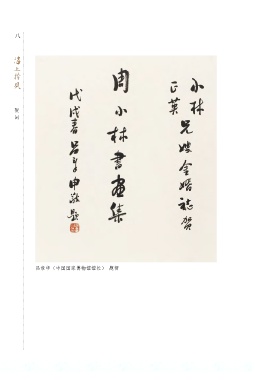 八
贺词
小林
正英
兄嫂金婚志贺
周小林书画集
戊戌春吕章申敬题
吕章申（中国国家博物馆馆长） 题贺